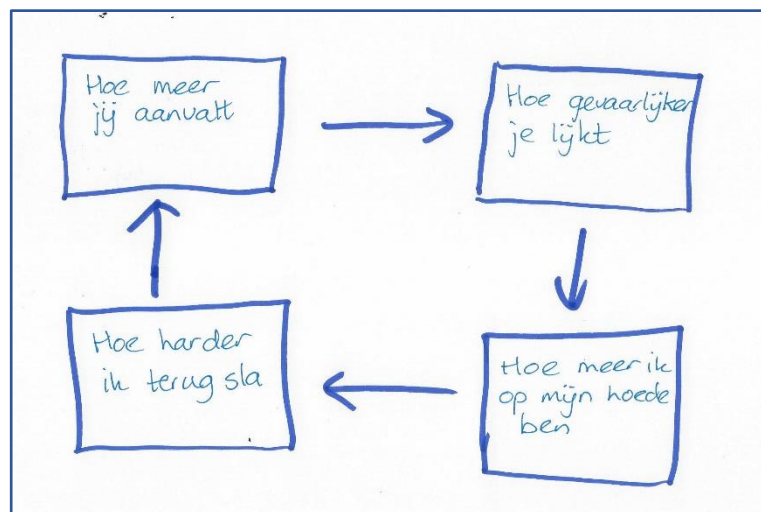 Hoe meer
jij aanvalt
Hoe gevaarlijker
je lijkt
Hoe meer ik
op mijn hoede
ben
Hoe harder
ik terug sla